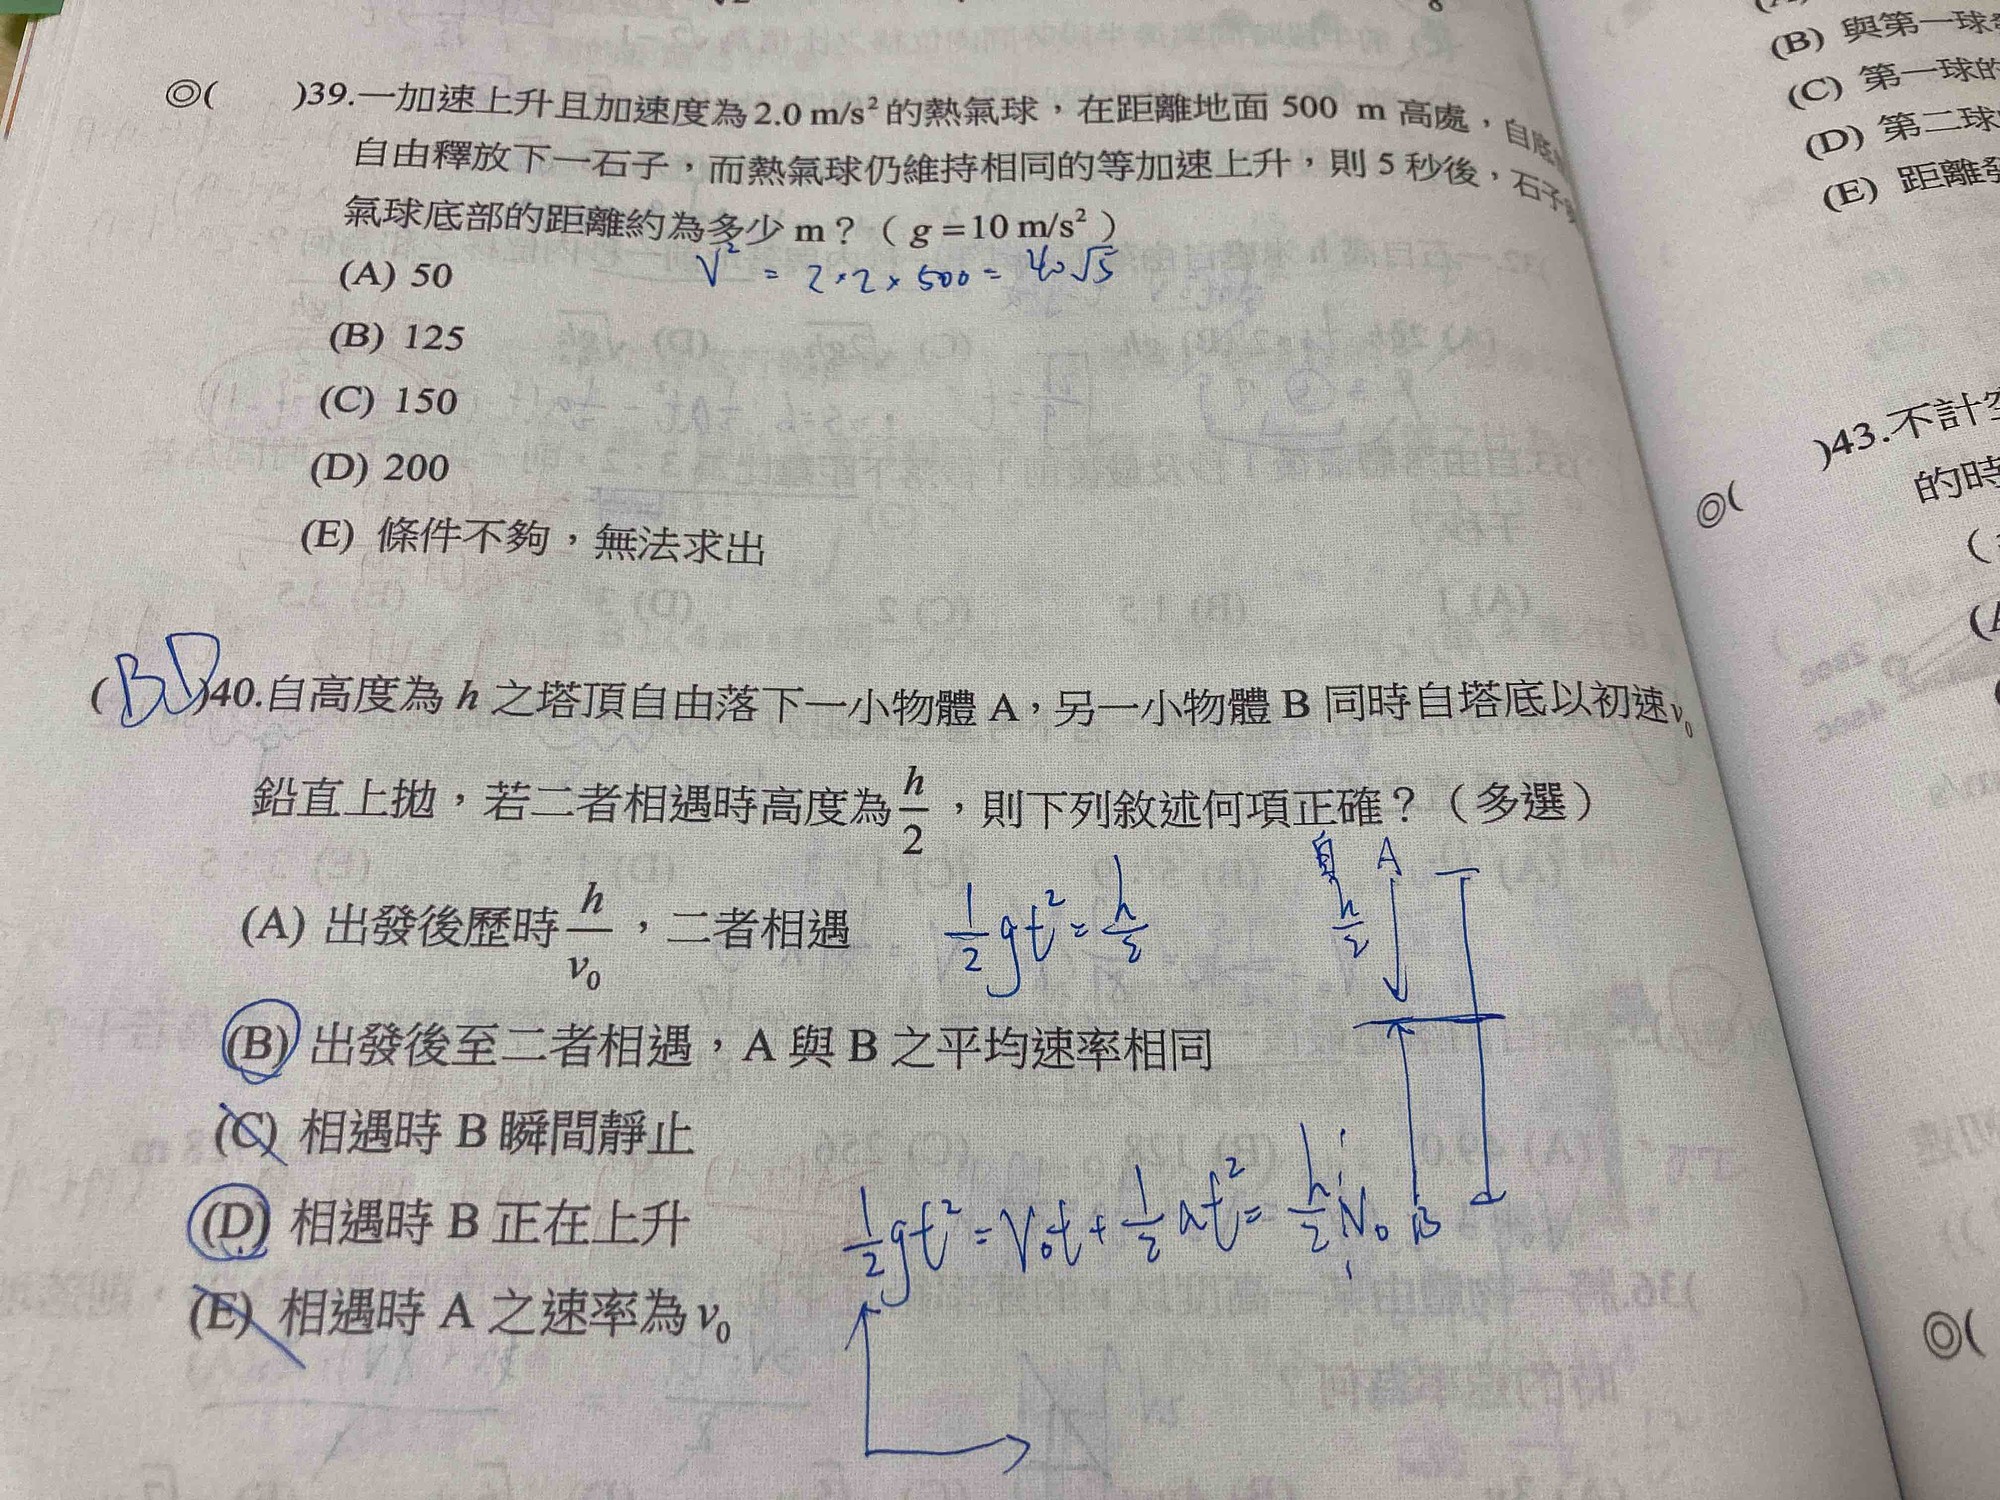 ◎( )39.一加速上升且加速度為2.0 m/s²的熱氣球，在距離地面 500 m 高處，自底
自由釋放下一石子，而熱氣球仍維持相同的等加速上升，則 5 秒後，石子
氣球底部的距離約為多少 m？（ g =10 m/s² ）
V² = 2×2×500 = 40√5
(A) 50
(B) 125
(C) 150
(D) 200
(E) 條件不夠，無法求出
(BD)40.自高度為 h 之塔頂自由落下一小物體 A，另一小物體 B 同時自塔底以初速v₀
鉛直上拋，若二者相遇時高度為h/2，則下列敘述何項正確？（多選）
(A) 出發後歷時h/v₀，二者相遇
½gt² = h/2
自 A
h/2
(B) 出發後至二者相遇，A 與 B 之平均速率相同
(C) 相遇時 B 瞬間靜止
(D) 相遇時 B 正在上升
½gt² = V₀t + ½at² = h/2
V₀ B
(E) 相遇時 A 之速率為v₀
(B) 與第一球
(C) 第一球的
(D) 第二球
(E) 距離
◎( )43.不計空
的時
(
◎(